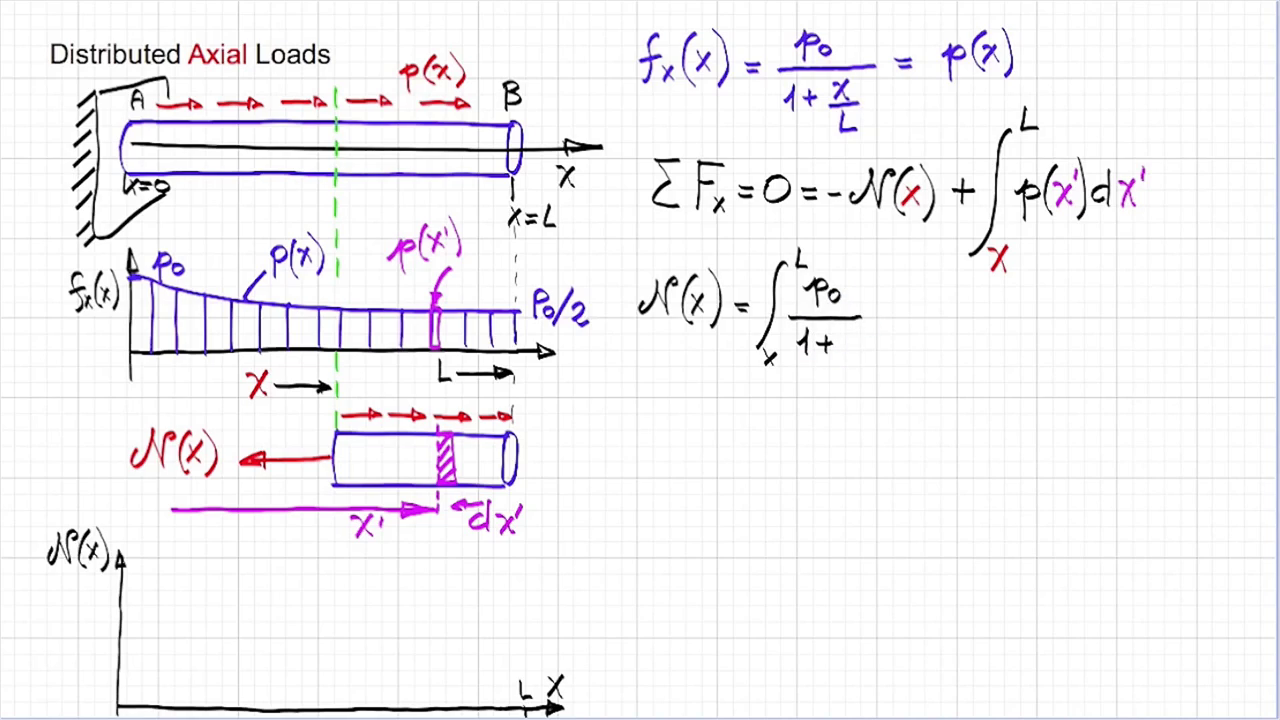 Distributed Axial Loads
p(x)
A
B
x=0
x
x=L
f_x(x)
p_0
p(x)
p(x')
P_0/2
x
L
N(x)
x'
dx'
N(x)
L x
f_x(x) = p_0 / (1 + x/L) = p(x)
∑ F_x = 0 = -N(x) + ∫_x^L p(x')dx'
N(x) = ∫_x^L p_0 / 1+